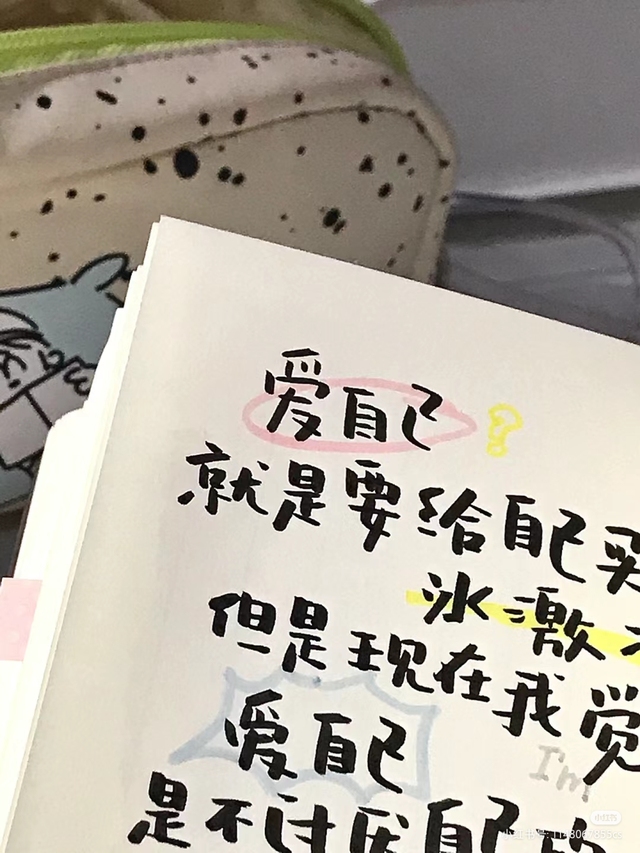 爱自己?
就是要给自己买
冰激
但是现在我觉
爱自己
I'm
是不讨厌自己的
小红书